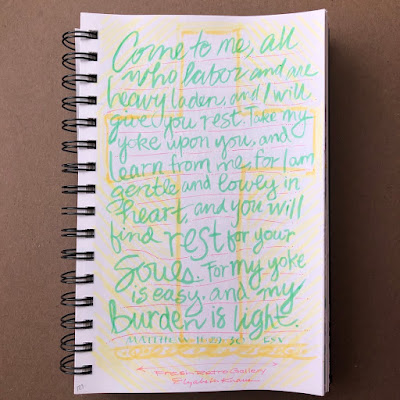 Come to me, all
who labor and are
heavy laden, and I will
give you rest. Take my
yoke upon you, and
learn from me, for I am
gentle and lowly in
heart, and you will
find rest for your
Souls. For my yoke
is easy, and my
Burden is light.
MATTHEW 11: ESV
Gallery
Elizabeth